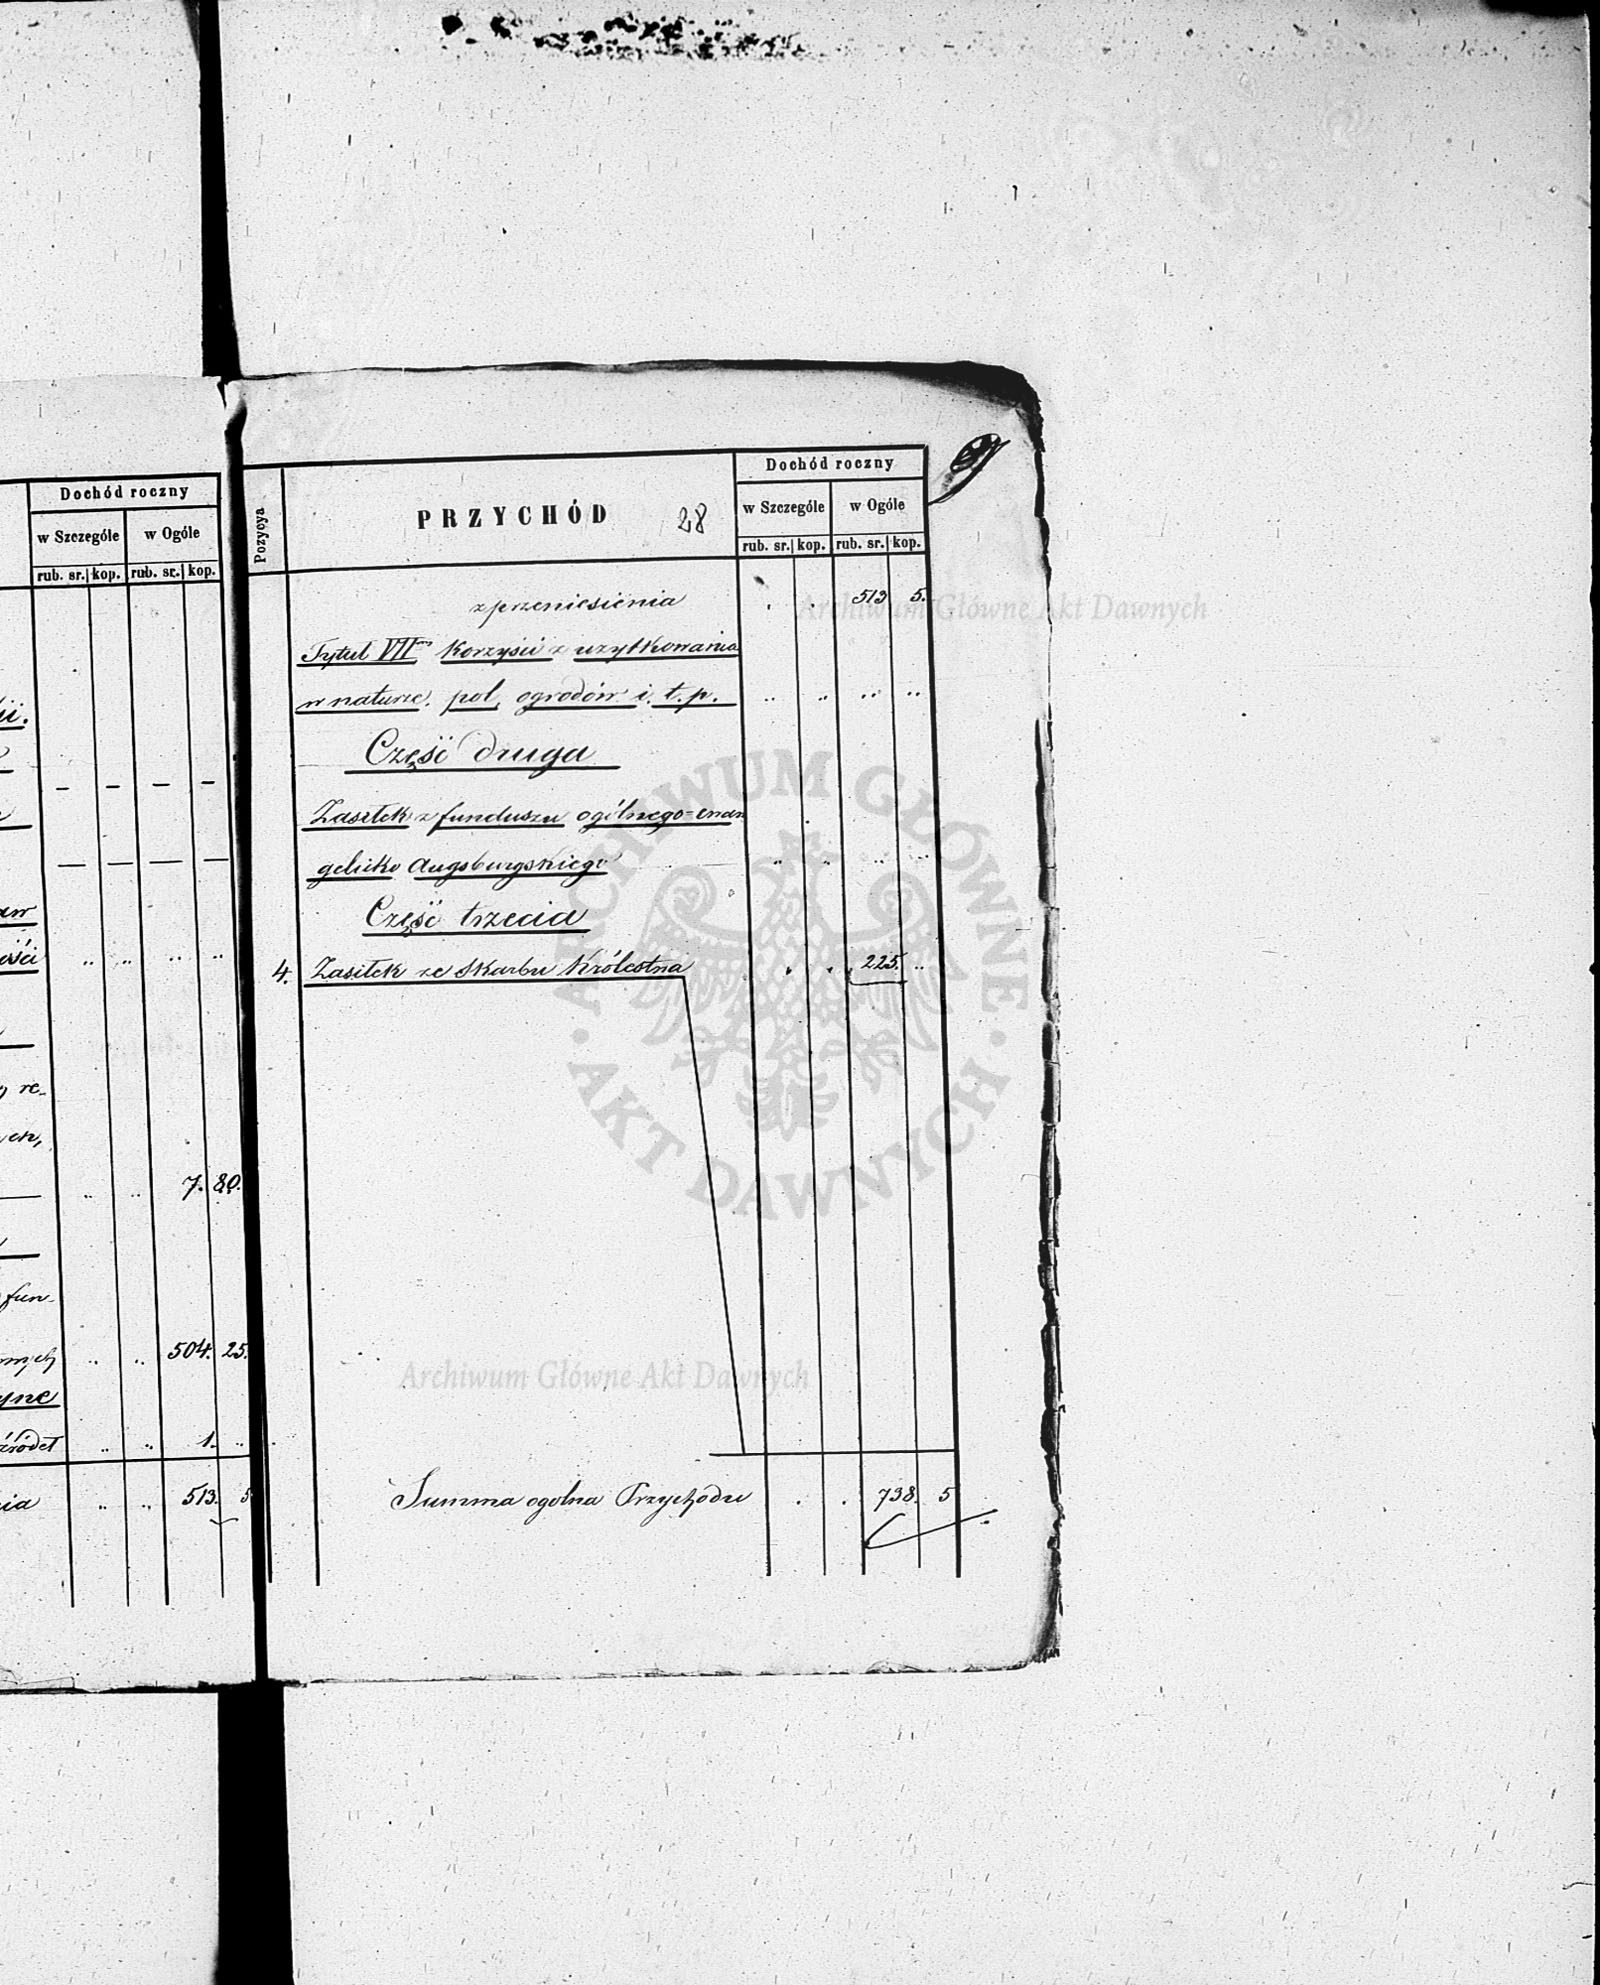 Dochód roczny
w Szczególe w Ogóle
rub. sr. kop. rub. sr. kop.
ii.
— — — —
— — — —
" " " "
re-
" " 7. 80.
fun-
" " 504. 25.
źródeł " " 1. "
" " 513. 5
Pozycya PRZYCHÓD 28 Dochód roczny
w Szczególe w Ogóle
rub. sr. kop. rub. sr. kop.
z przeniesienia . . 513 5.
Tytuł VII Korzyści z użytkowania
w naturze, pol, ogrodów i. t. p. " " " "
Część druga
Zasiłek z funduszu ogólnego-ewan
gelicko Augsburgskiego " " " "
Część trzecia
4. Zasiłek ze Skarbu Królestwa . . 225. "
Summa ogolna Przychodu . . 738. 5
Archiwum Główne Akt Dawnych
ARCHIWUM GŁÓWNE · AKT DAWNYCH ·
Archiwum Główne Akt Dawnych